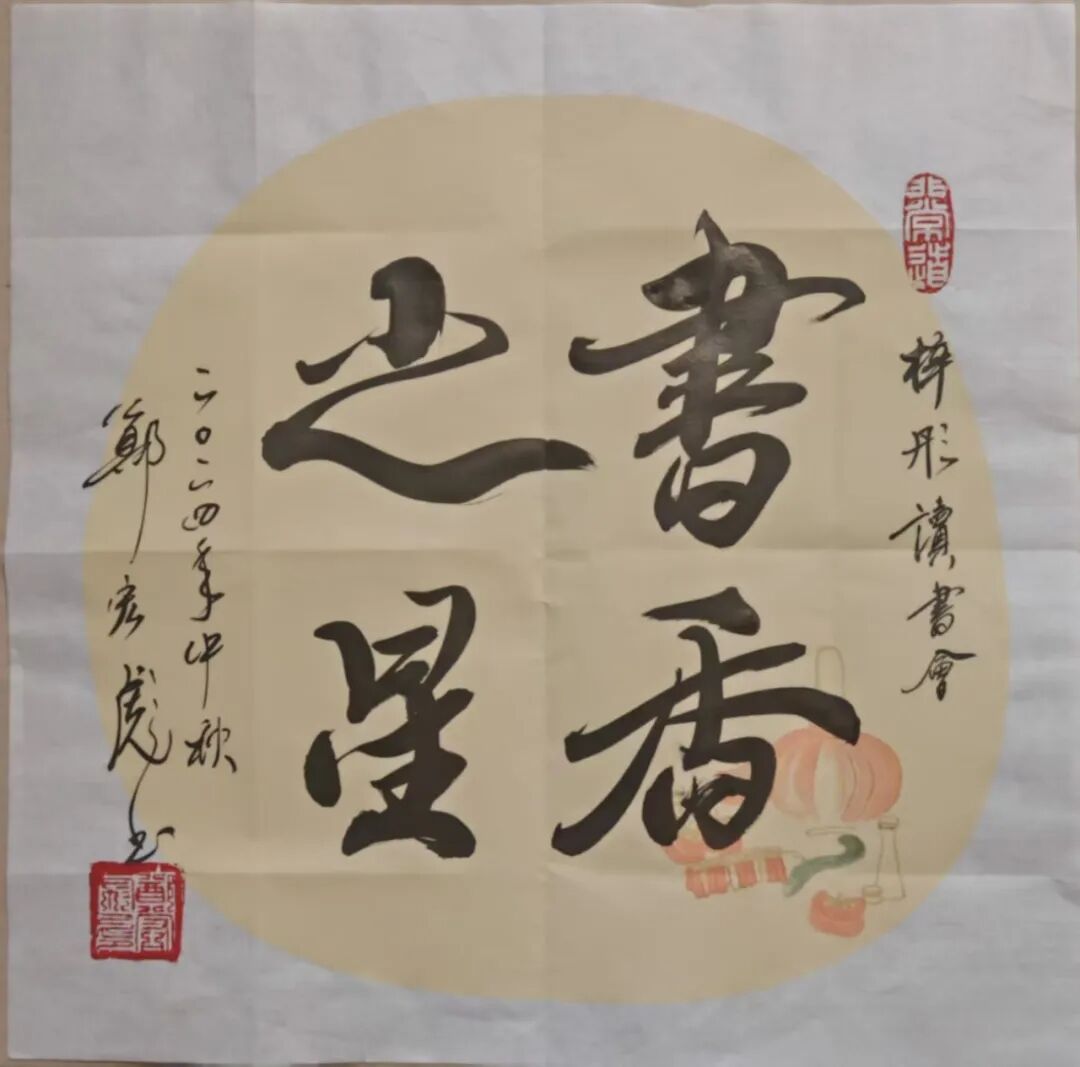 非常道
梓彤讀書會
書香
之星
二〇二四年中秋
鄭宏彪书